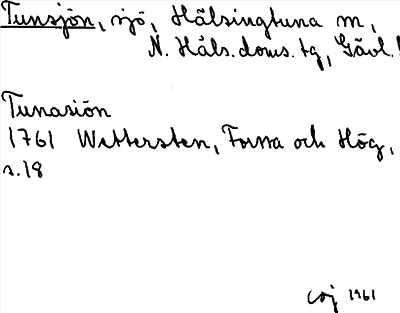 Tunsjön, sjö, Hälsingtuna sn,
N. Häls. doms. tg, Gävl. l
Tunasiön
1761 Wettersten, Forssa och Hög,
s. 18
1961